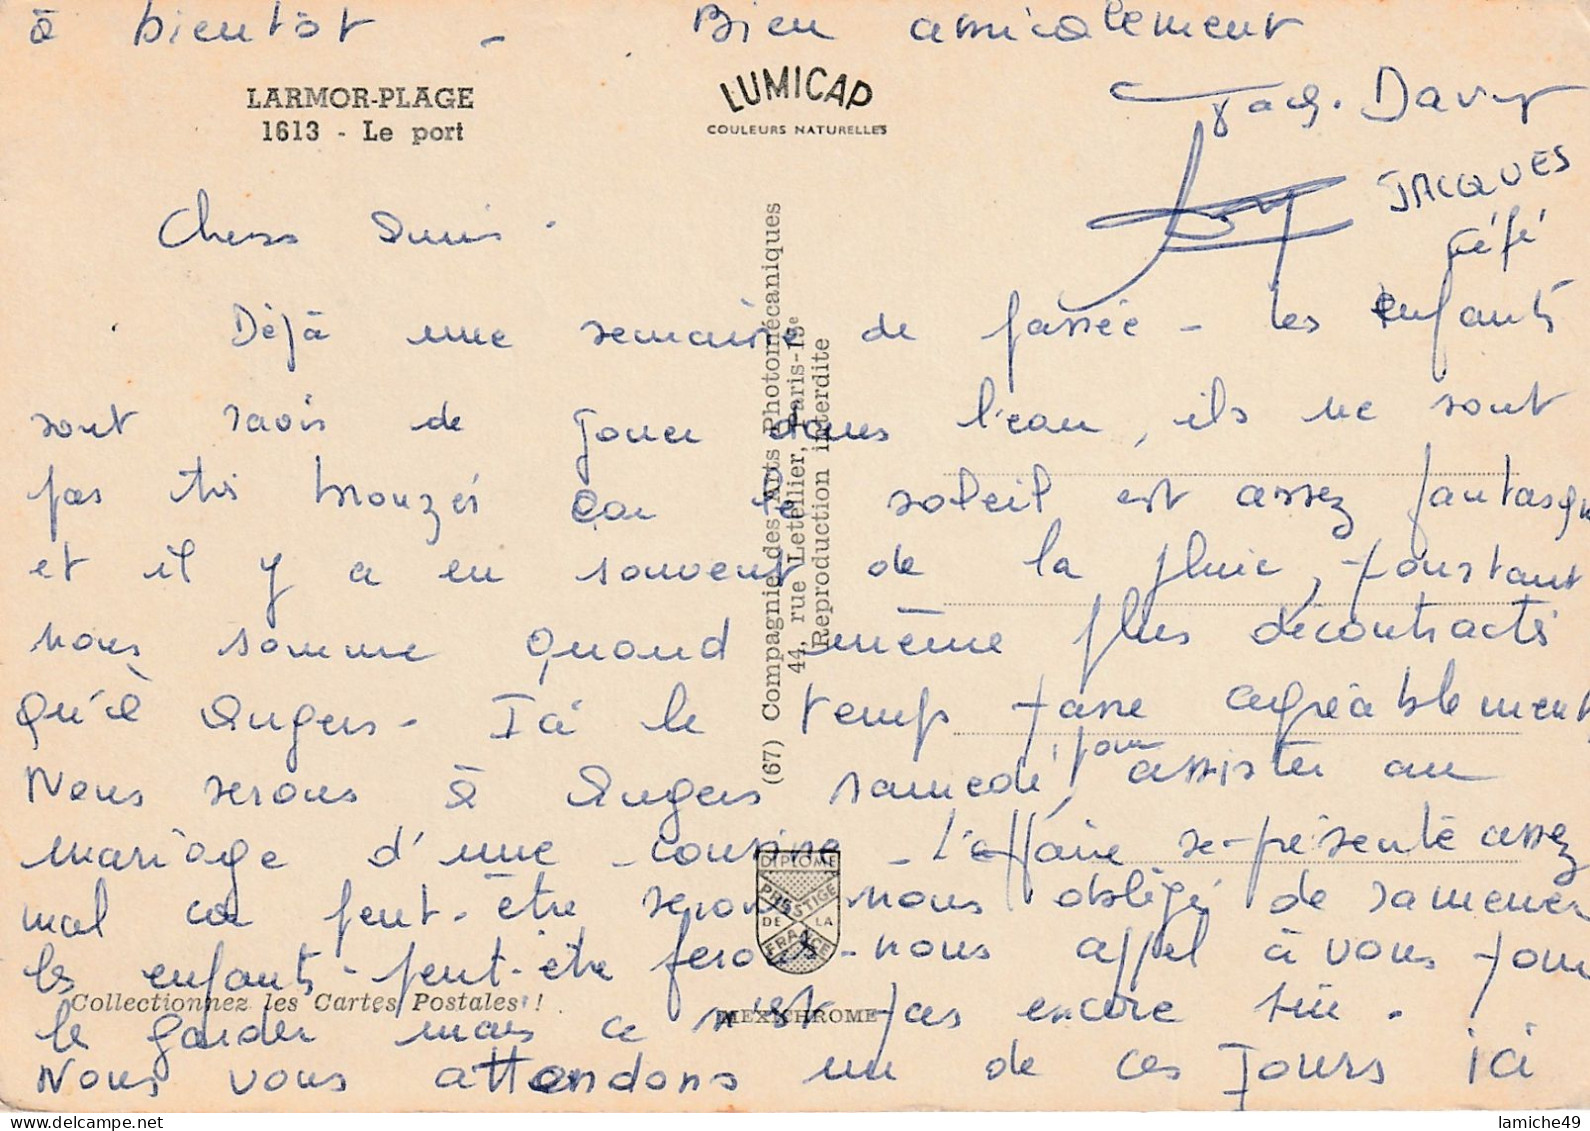 à bientôt - Bien amicalement
LARMOR-PLAGE
1613 - Le port
LUMICAP
COULEURS NATURELLES
Jacq. Davy
JACQUES
FéFé
Chers Amis.
Déjà une semaine de passée - les enfants
sont ravis de jouer dans l'eau, ils ne sont
pas très bronzés car le soleil est assez fantasqu
et il y a eu souvent de la pluie, pourtant
nous somme quand même plus décontractés
qu'à Angers - Ici le temps passe agréablement
Nous serons à Angers samedi, pour assister au
mariage d'une cousine - l'affaire se présente assez
mal car peut-être serons-nous obligé de ramener
les enfants - peut-être ferons-nous appel à vous pour
le garder mais ce n'est pas encore sûr.
Nous vous attendons un de ces Jours ici
(67) Compagnie des Arts Photomécaniques
44, rue Letellier, Paris-15e
Reproduction interdite
DIPLOME
PRESTIGE
DE LA
FRANCE
Collectionnez les Cartes Postales !
MEXICHROME
lamiche49